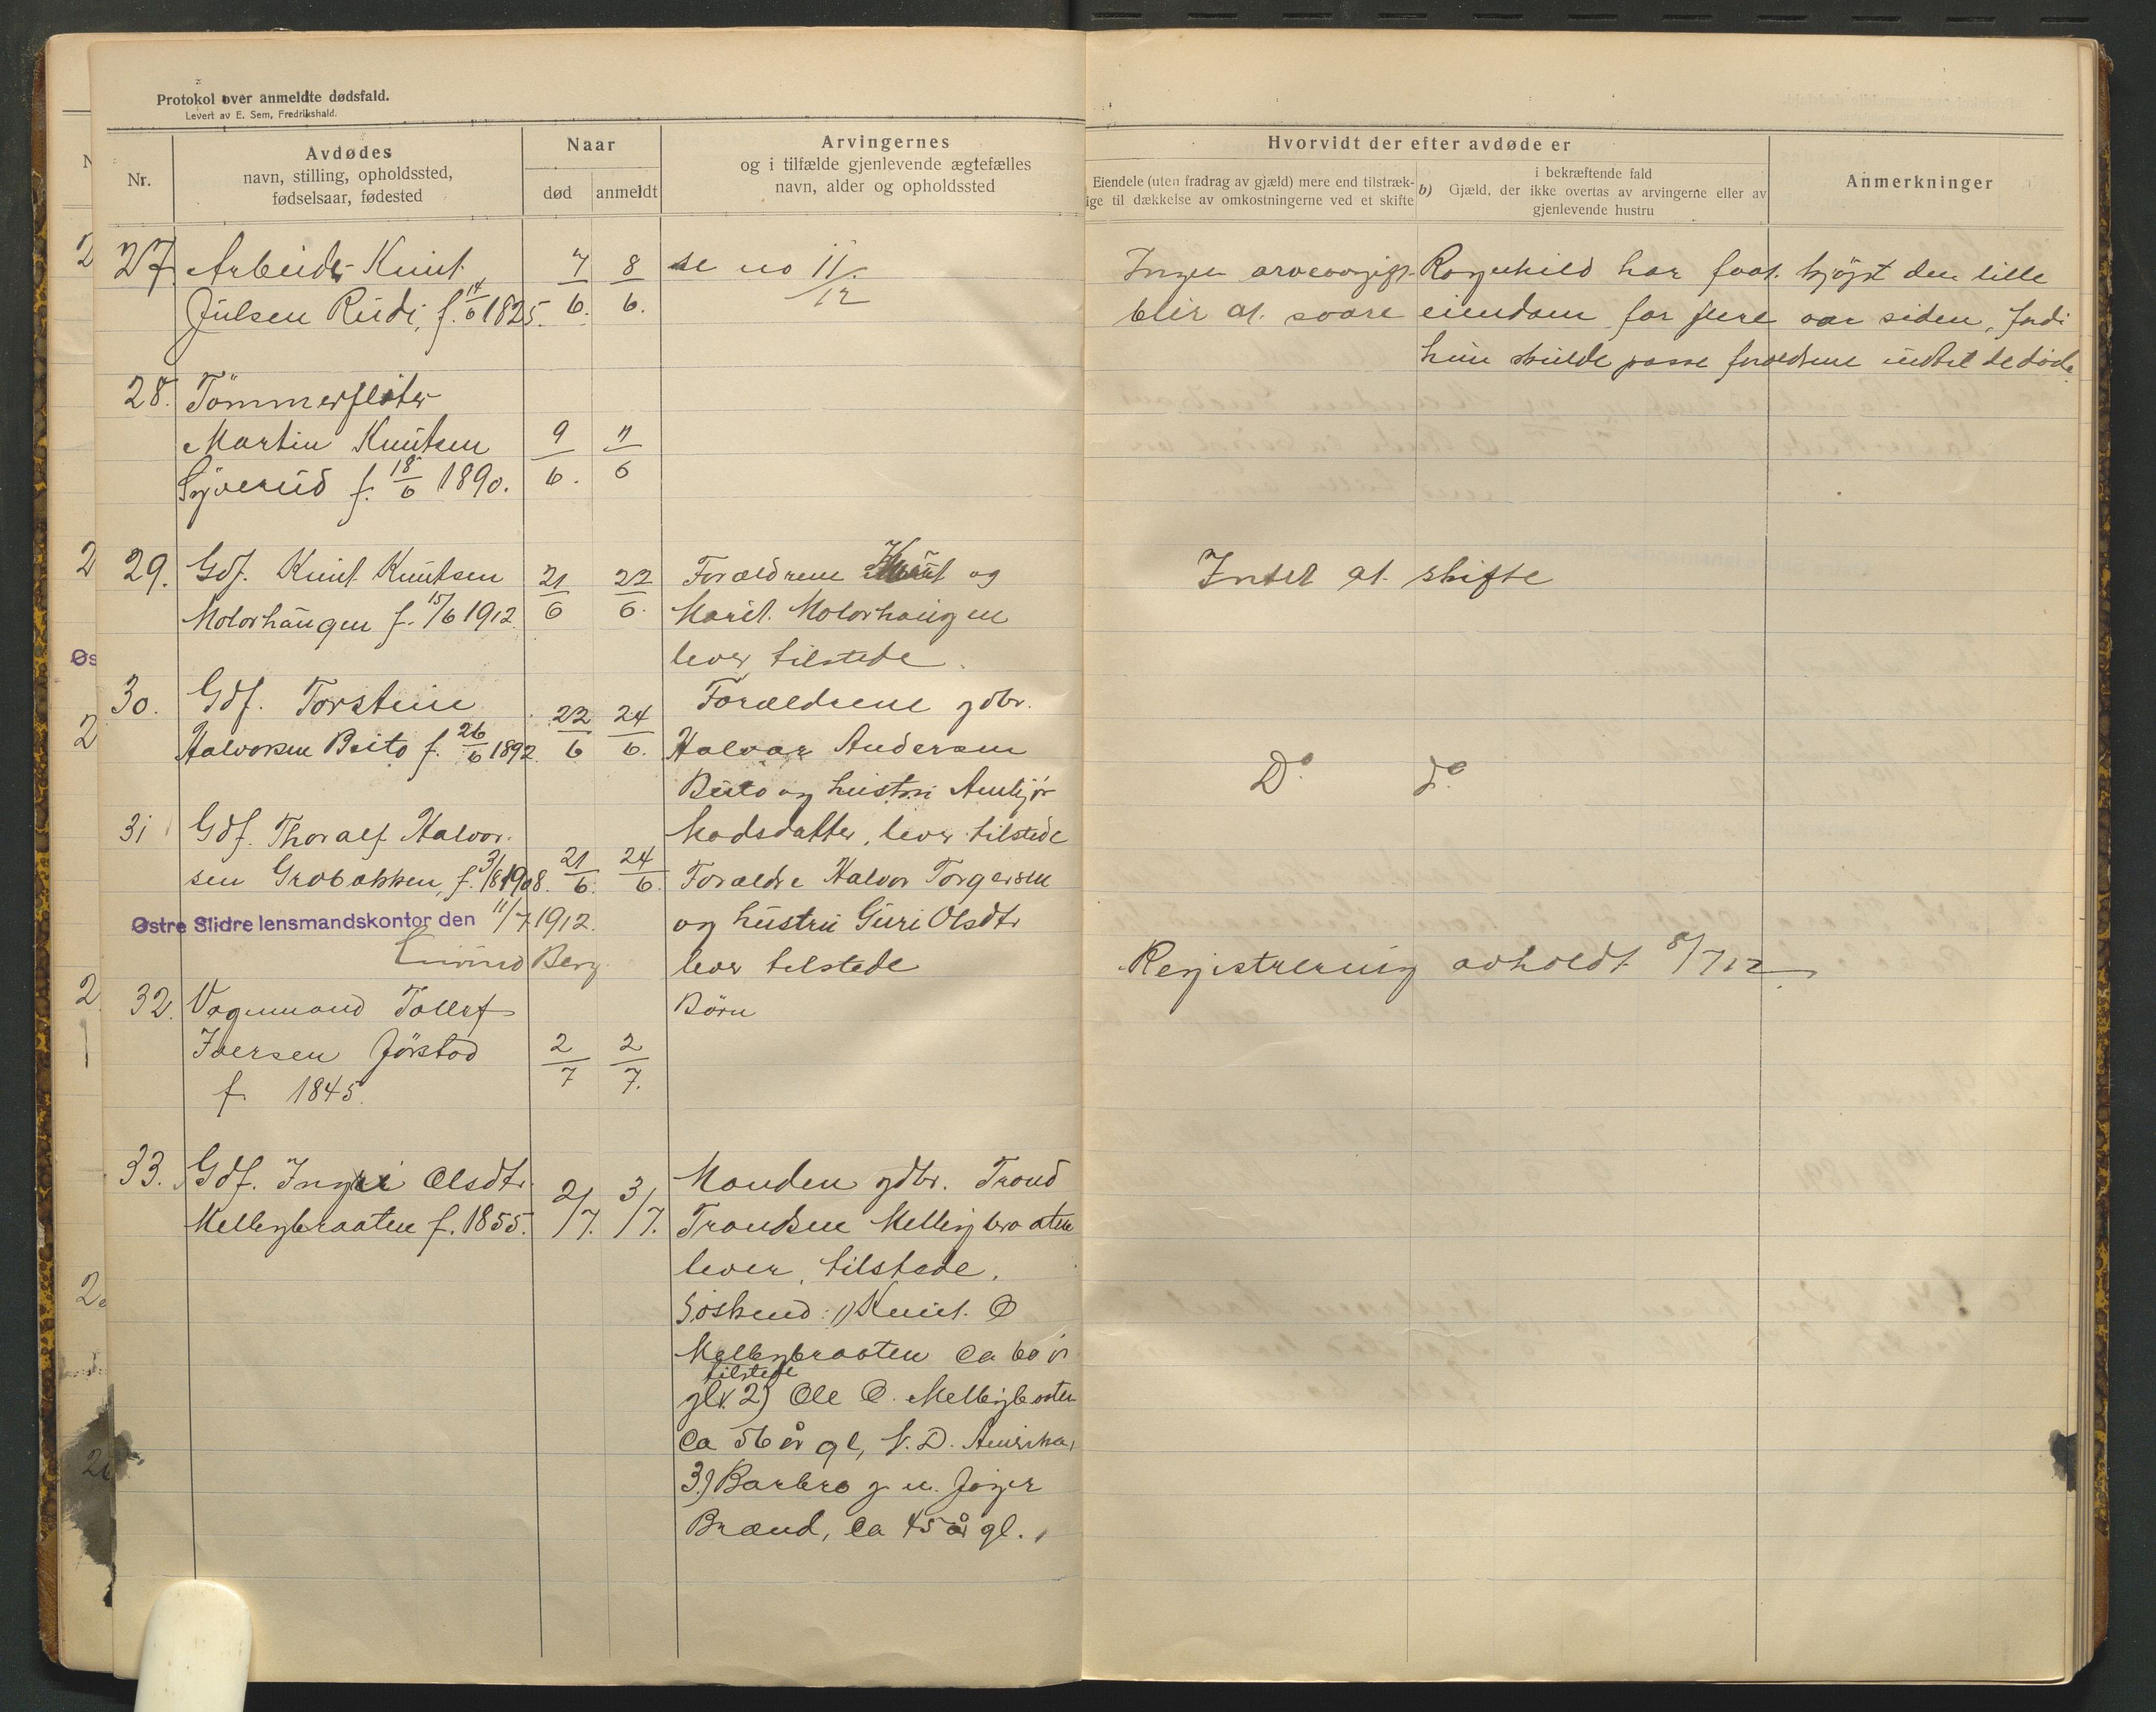 Protokol over anmeldte dødsfald.
Levert av E. Sem, Fredrikshald.
Nr.
Avdødes
navn, stilling, opholdssted,
fødselsaar, fødested
Naar
død
anmeldt
Arvingernes
og i tilfælde gjenlevende ægtefælles
navn, alder og opholdssted
Hvorvidt der efter avdøde er
Eiendele (uten fradrag av gjæld) mere end tilstræk-
ige til dækkelse av omkostningerne ved et skifte
i bekræftende fald
b) Gjæld, der ikke overtas av arvingerne eller av
gjenlevende hustru
Anmerkninger
27. Arbeider Knut
Julsen Rudi, f. 14/6 1825.
7/6.
8/6.
se no 11/12
Ingen arveavgift
blir at svare
Ragnhild har faat kjøpt den lille
eiendom for flere aar siden, fordi
hun skulde passe forældrene indtil de døde
28. Tömmerfløter
Martin Knutsen
Syverud f. 18/6 1890.
9/6.
11/6
29. Gdf. Knut Knutsen
Motorhaugen f. 15/6 1912
21/6
22/6.
Forældrene Knut og
Marit Motorhaugen
lever tilstede.
Intet at skifte
30. Gdf. Torstein
Halvorsen Beito f. 26/6 1892.
22/6
24/6.
Forældrene gdbr.
Halvor Andersen
Beito og hustru Ambjör
Madsdatter, lever tilstede
Do do
31 Gdf. Thoralf Halvor-
sen Grobakken, f. 3/8 1908.
21/6.
24/6.
Forældre Halvor Torgersen
og hustru Guri Olsdtr
lever tilstede
Østre Slidre lensmandskontor den 11/7 1912.
Eivind Berg
32. Vognmand Tollef
Iversen Jörstad
f. 1845.
2/7
2/7.
Börn
Registrering avholdt 8/7 12.
33. Gdf. Ingri Olsdtr.
Mellegbraaten f. 1855.
2/7.
3/7.
Manden gdbr. Trond
Trondsen Mellegbraaten
lever tilstede.
Söskend: 1) Knut O
Mellegbraaten ca 60 år
tilstede
gl. 2) Ole O. Mellegbraaten
ca 56 år gl, N. D. Amerika,
3) Barbro g. m.
Brænd, ca 45 år gl.